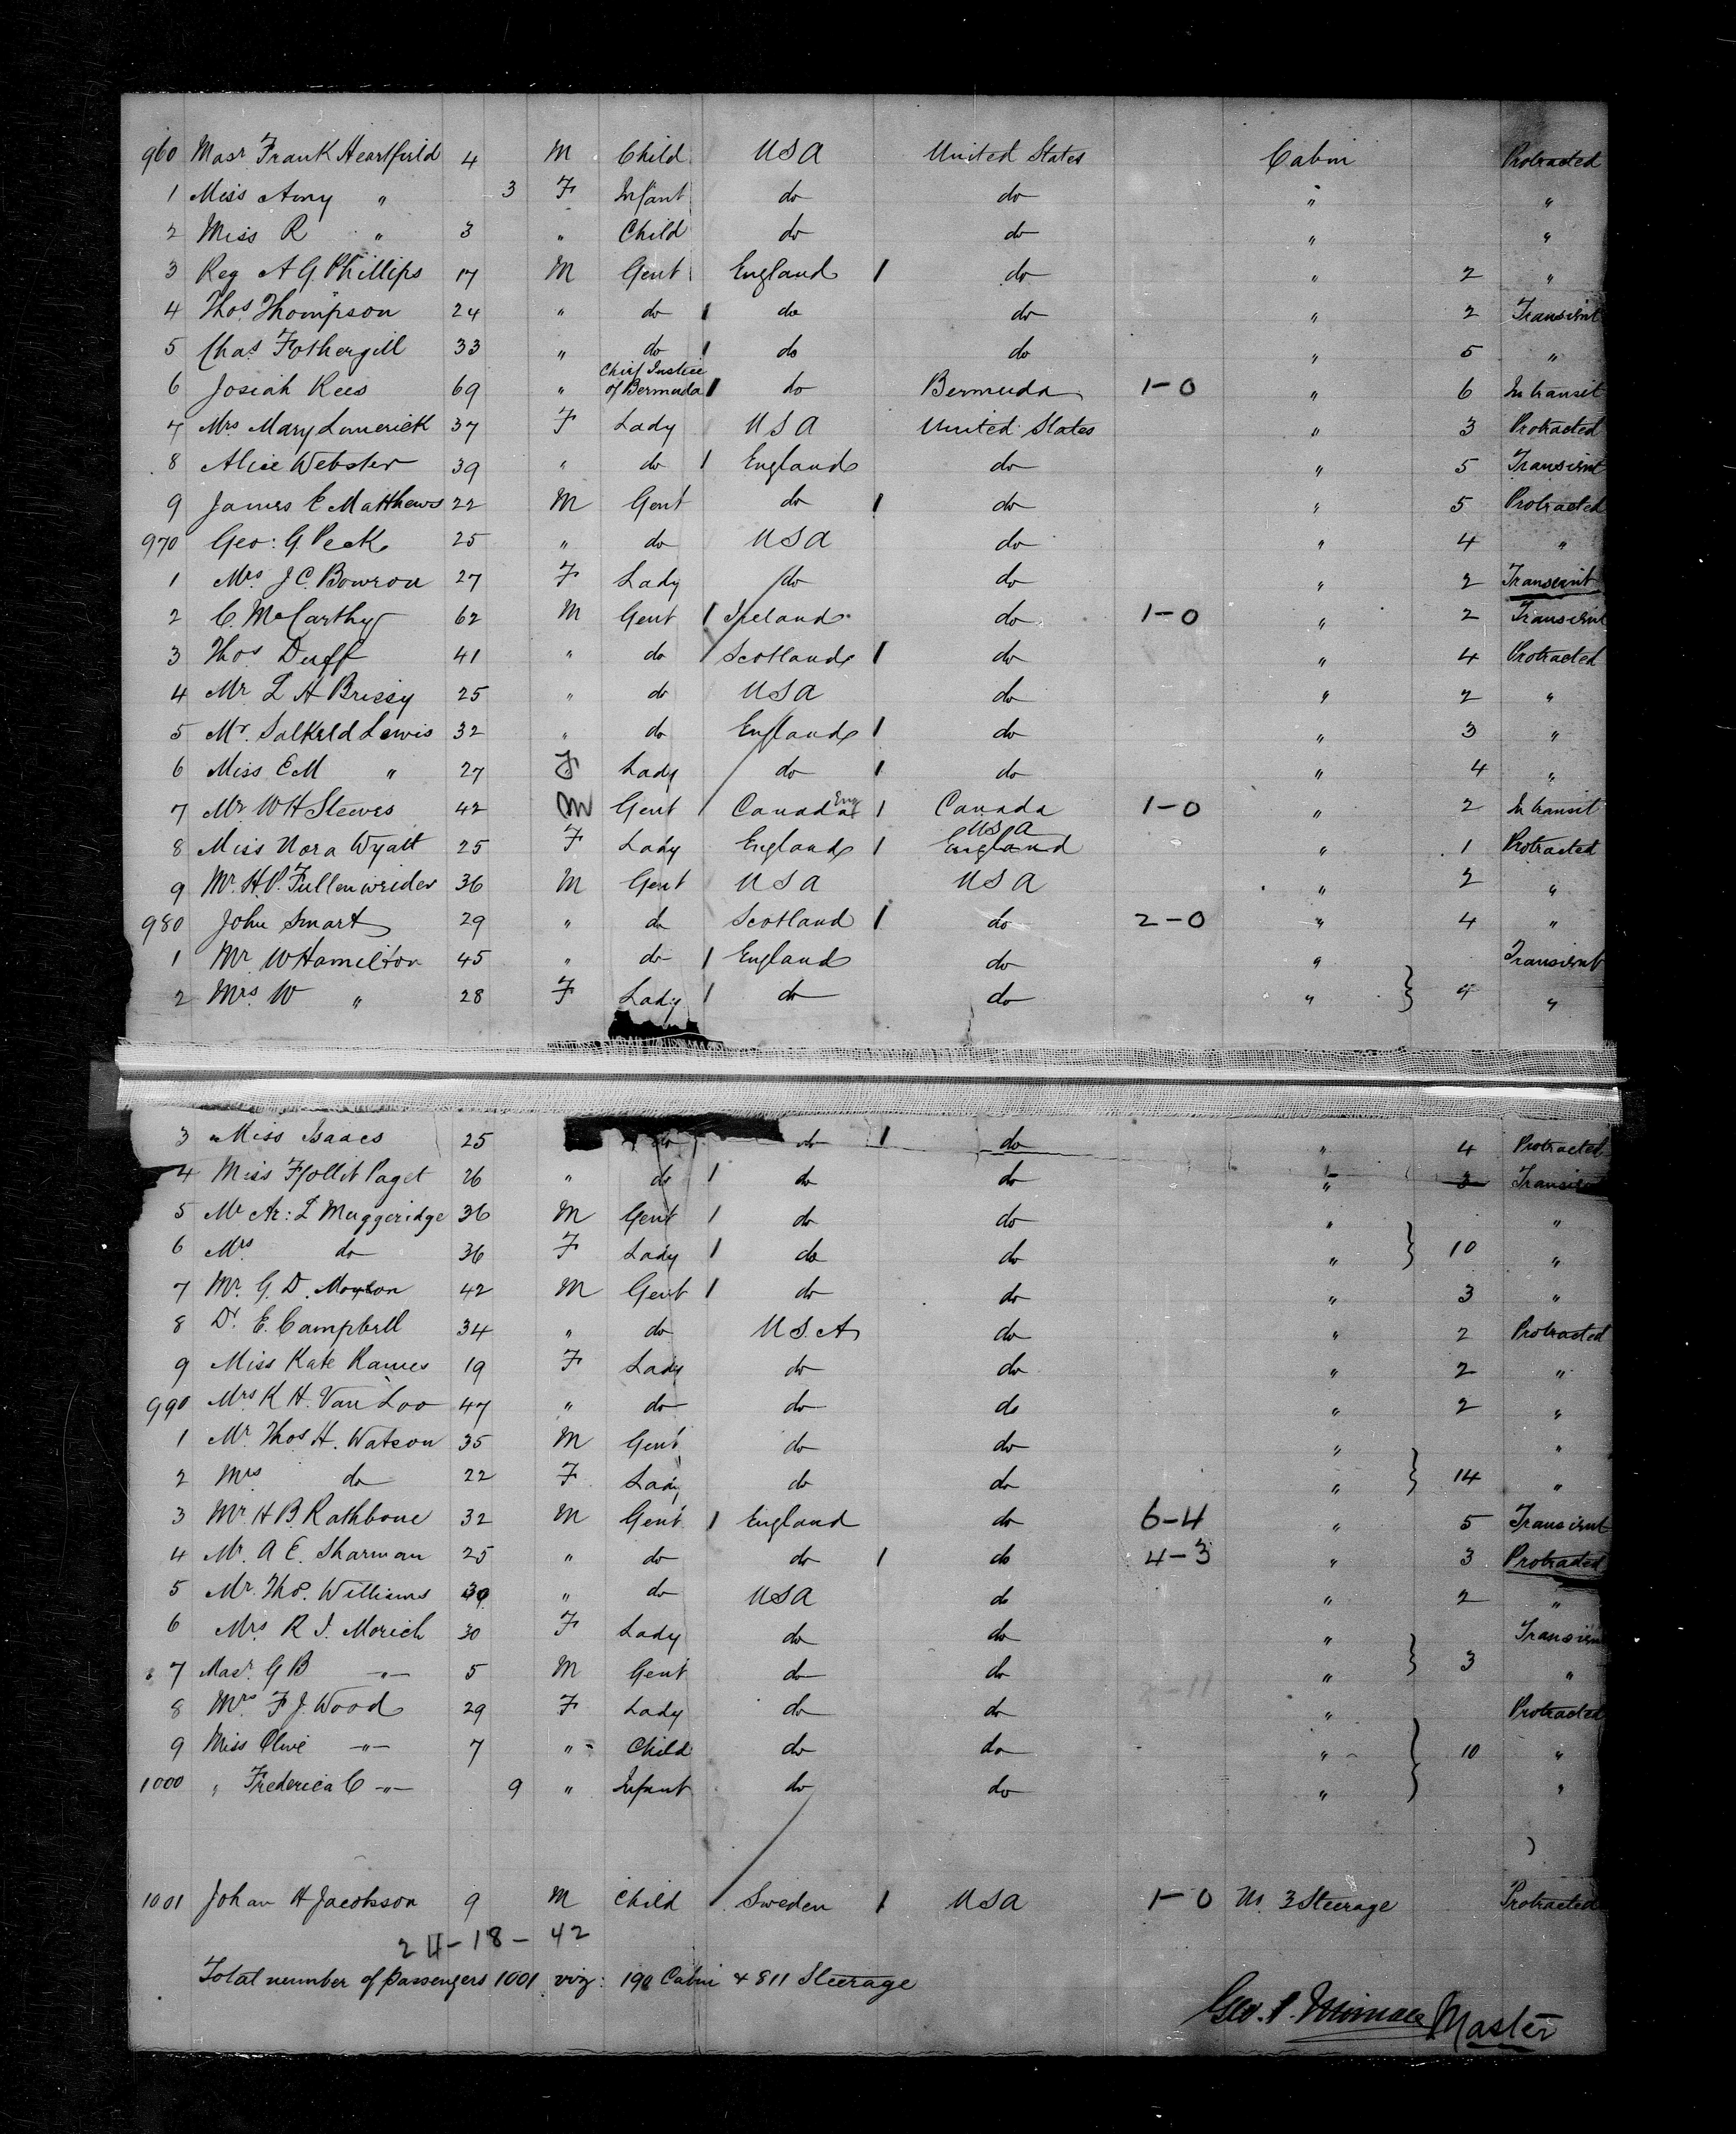 960 Masr Frank Heartfield 4 M Child USA United States Cabin Protracted
1 Miss Amy " 3 F Infant do do " "
2 Miss R " 3 " Child do do " "
3 Reg A G Phillips 17 M Gent England 1 do " 2 "
4 Thos Thompson 24 " do 1 do do " 2 Transient
5 Chas Fothergill 33 " do 1 do do " 5 "
6 Josiah Rees 69 " Chief Justice of Bermuda 1 do Bermuda 1-0 " 6 In transit
7 Mrs Mary Limerick 37 F Lady USA United States " 3 Protracted
8 Alice Webster 39 " do 1 England do " 5 Transient
9 James E Matthews 22 M Gent do 1 do " 5 Protracted
970 Geo: G Peck 25 " do USA do " 4 "
1 Mrs J C Bowron 27 F Lady do do " 2 Transient
2 C. McCarthy 62 M Gent 1 Ireland do 1-0 " 2 Transient
3 Thos Duff 41 " do Scotland 1 do " 4 Protracted
4 Mr L A Brissy 25 " do USA do " 2 "
5 Mr. Salkeld Lewis 32 " do England 1 do " 3 "
6 Miss E M " 27 F Lady do 1 do " 4 "
7 Mr W H Steeves 42 M Gent Canada Eng 1 Canada 1-0 " 2 In transit
8 Miss Nora Wyatt 25 F Lady England 1 England USA " 1 Protracted
9 Mr. H. P. Fullenwrider 36 M Gent USA USA " 2 "
980 John Smart 29 " do Scotland 1 do 2-0 " 4 "
1 Mr W Hamilton 45 " do 1 England do " Transient
2 Mrs W " 28 F Lady 1 do do " } 4 "
3 Miss Isaacs 25 do do 1 do " 4 Protracted
4 Miss Ffollit Paget 26 " do 1 do do " 3 Transient
5 Mr Ar: L Muggeridge 36 M Gent 1 do do " "
6 Mrs do 36 F Lady 1 do do " } 10 "
7 Mr. G. D. Moxon 42 M Gent 1 do do " 3 "
8 Dr. E. Campbell 34 " do U.S.A do " 2 Protracted
9 Miss Kate Rames 19 F Lady do do " 2 "
990 Mrs K H. Van Loo 47 " do do do " 2 "
1 Mr Thos H. Watson 35 M Gent do do " "
2 Mrs do 22 F Lady do do " } 14 "
3 Mr. H B. Rathbone 32 M Gent 1 England do 6-4 " 5 Transient
4 Mr. A E. Sharman 25 " do do 1 do 4-3 " 3 Protracted
5 Mr. Thos. Williams 30 " do USA do " 2 "
6 Mrs R I. Morich 30 F Lady do do " Transient
7 Masr G B -"- 5 M Gent do do " } 3 "
8 Mrs F J. Wood 29 F Lady do do " Protracted
9 Miss Olive -"- 7 " Child do do " } 10 "
1000 " Frederica C -"- 9 " Infant do do " "
1001 Johan H Jacobsson 9 M Child Sweden 1 USA 1-0 3 Steerage Protracted
24-18-42
Total number of passengers 1001 viz: 190 Cabin & 811 Steerage
Geo. Master